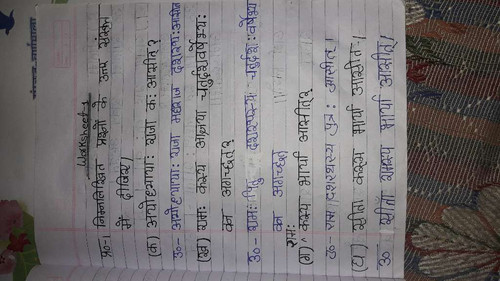 Worksheet-1
प्र०-1 निम्नलिखित प्रश्नों के उत्तर संस्कृत
में दीजिए।
(क) अयोध्यायाः राजा कः आसीत्?
उ०- अयोध्यायाः राजा महाराज दशरथः आसीत्
(ख) रामः कस्य आज्ञया चतुर्दशवर्षेभ्यः
वन अगच्छत्?
उ०- रामः पितृ दशरथस्य चतुर्दशःवर्षेभ्य
वन अगच्छत्
रामः
(ग) ^ कस्य भार्या आसीत्?
उ०- राम दशरथस्य पुत्रः आसीत्।
(घ) सीता कस्य भार्या आसीत।
उ०- सीता रामस्य भार्या आसीत्।